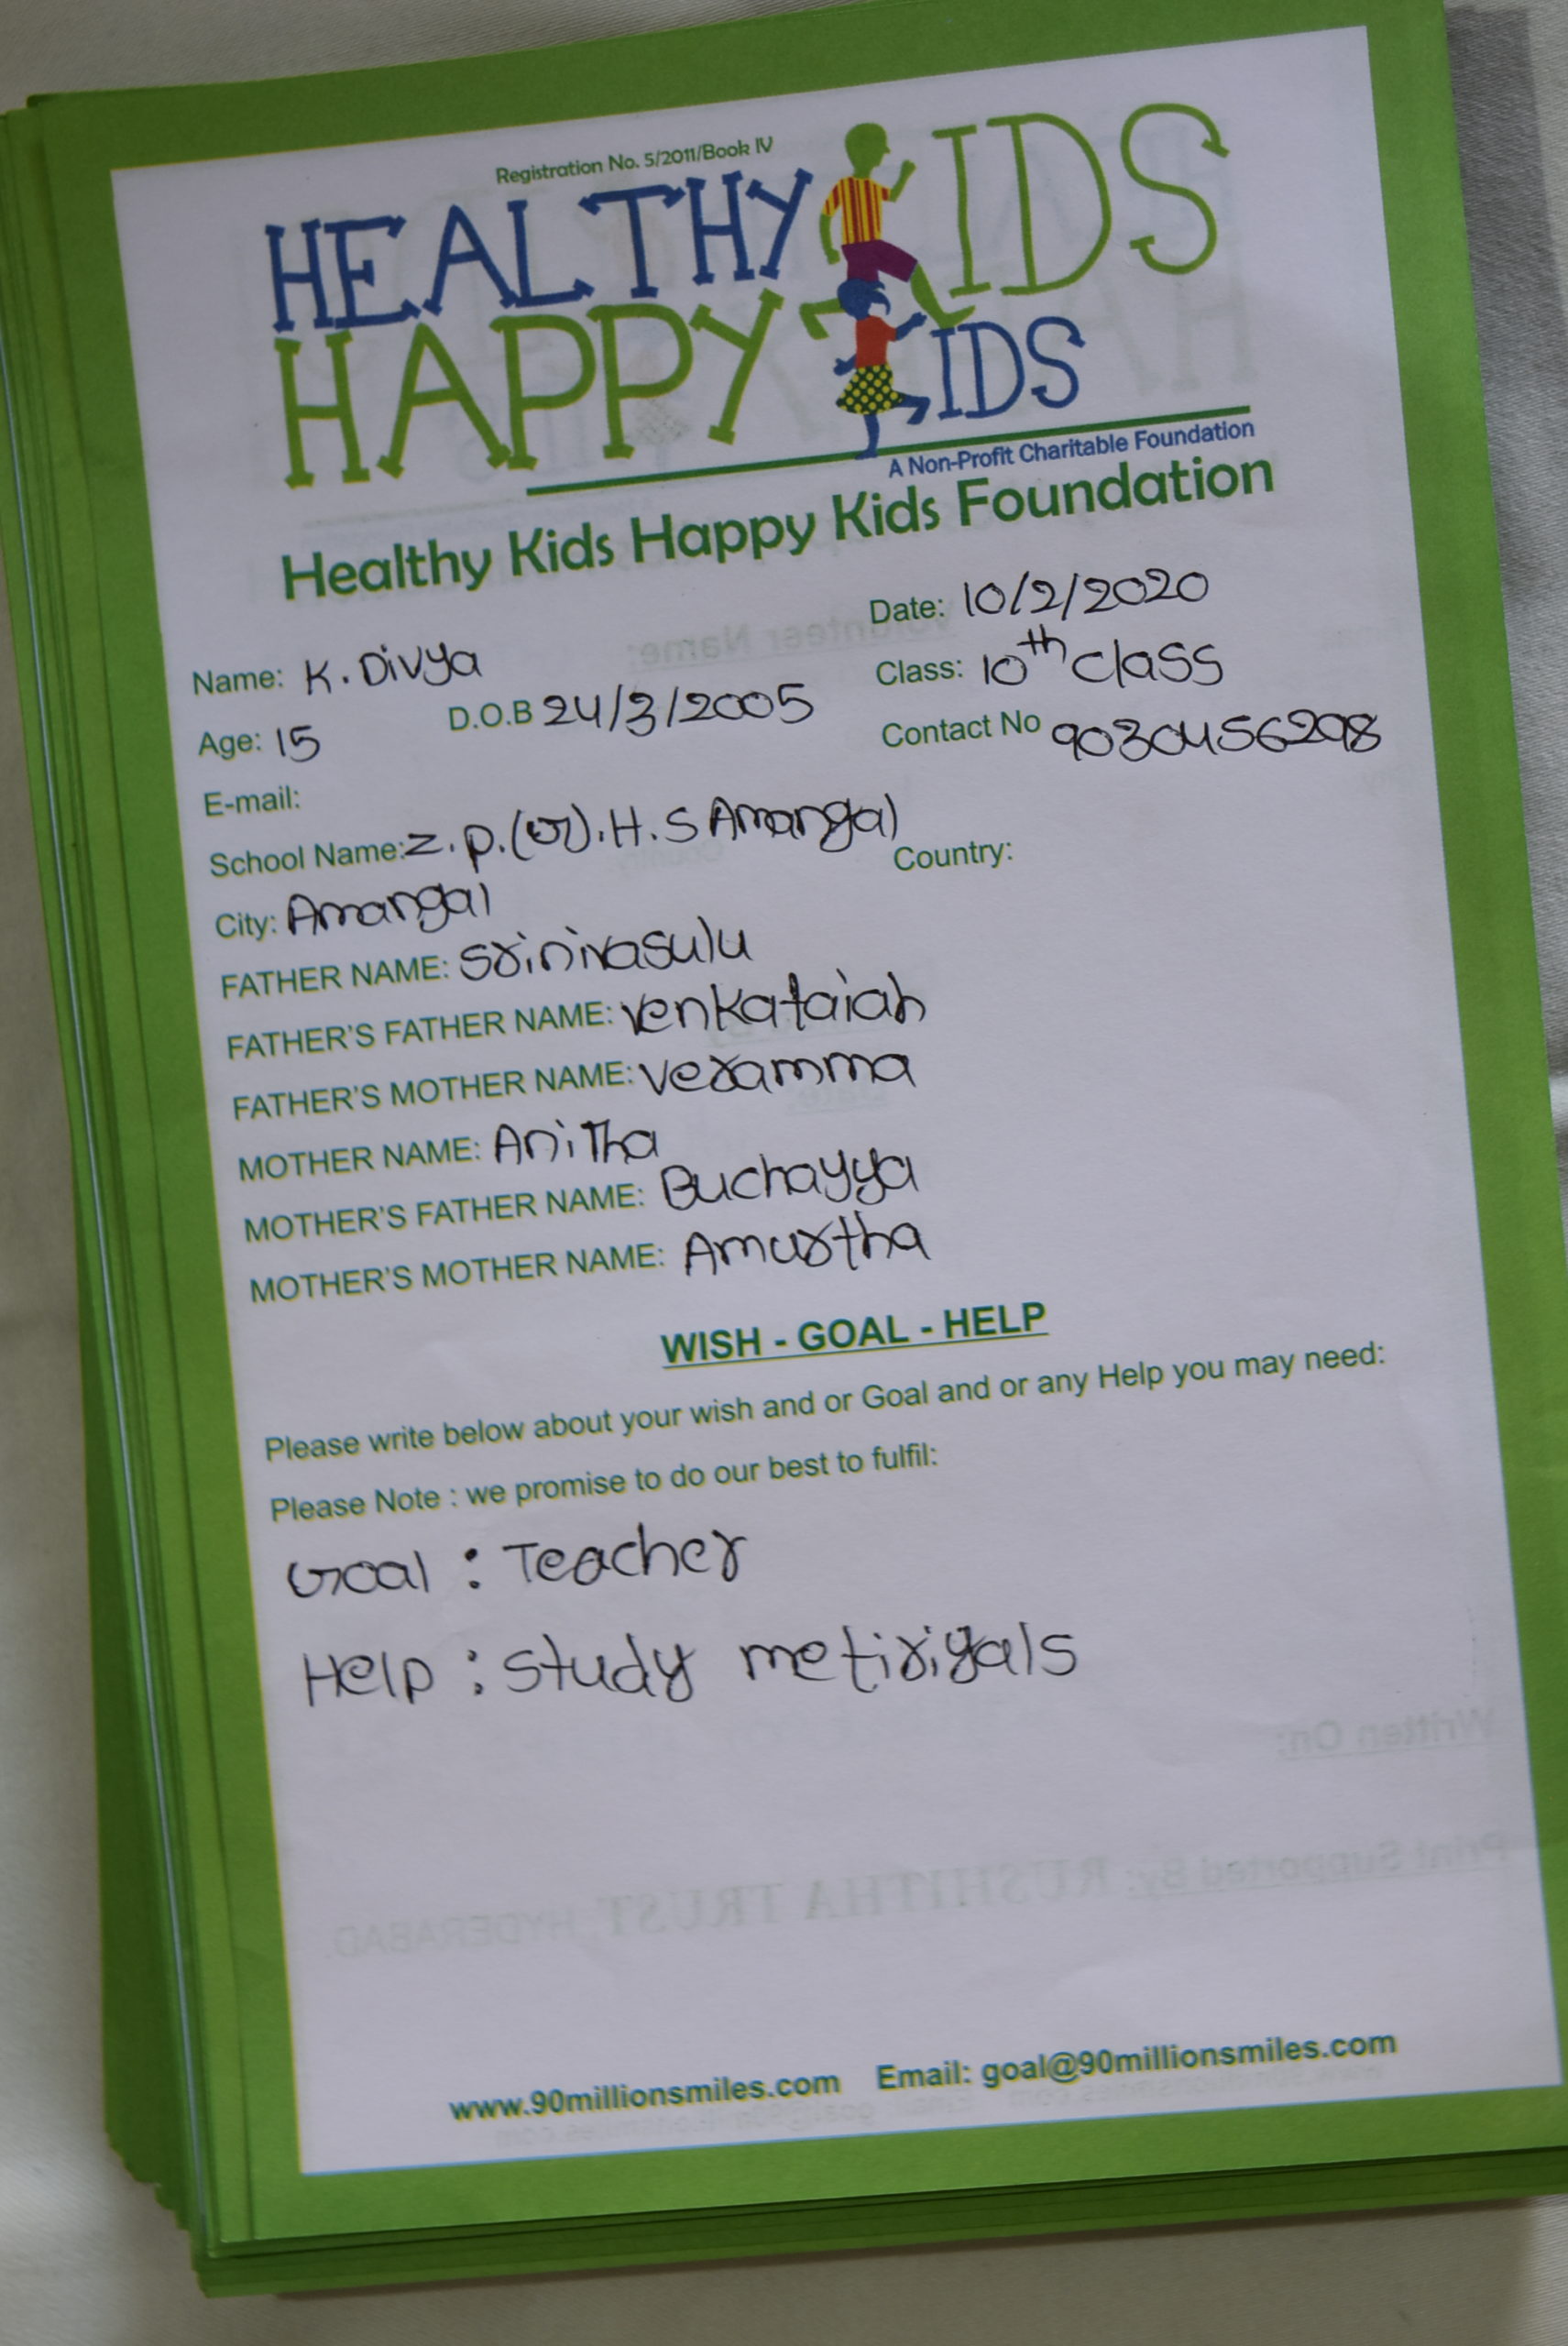 Registration No. 5/2011/Book IV
HEALTHY KIDS
HAPPY KIDS
A Non-Profit Charitable Foundation
Healthy Kids Happy Kids Foundation
Date: 10/2/2020
Name: K. Divya
Class: 10th class
Age: 15 D.O.B 24/3/2005
Contact No 9030456298
E-mail:
School Name: Z.P.(G).H.S Amangal
City: Amangal Country:
FATHER NAME: Srinivasulu
FATHER'S FATHER NAME: Venkataiah
FATHER'S MOTHER NAME: Veramma
MOTHER NAME: Anitha
MOTHER'S FATHER NAME: Buchayya
MOTHER'S MOTHER NAME: Amurtha
WISH - GOAL - HELP
Please write below about your wish and or Goal and or any Help you may need:
Please Note : we promise to do our best to fulfil:
Goal : Teacher
Help : study metiriyals
Written On:
Print Supported By: RUSHITHA TRUST, HYDERABAD.
www.90millionsmiles.com Email: goal@90millionsmiles.com